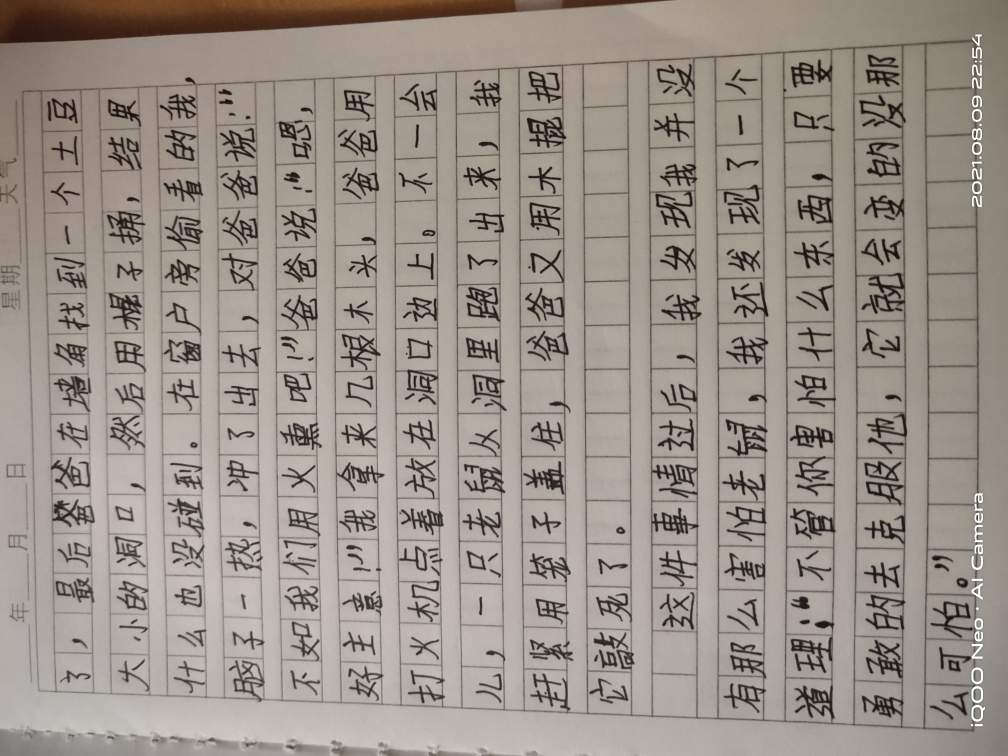 年 月 日 星期 天气
了，最后爸爸在墙角找到一个土豆
大小的洞口，然后用棍子捅，结果
什么也没碰到。在窗户旁偷看的我，
脑子一热，冲了出去，对爸爸说：“
不如我们用火熏吧！”爸爸说：“嗯，
好主意！”我拿来几根木头，爸爸用
打火机点着放在洞口边上。不一会
儿，一只老鼠从洞里跑了出来，我
赶紧用笼子盖住，爸爸又用木棍把
它敲死了。
这件事情过后，我发现我并没
有那么害怕老鼠，我还发现了一个
道理；“不管你害怕什么东西，只要
勇敢的去克服他，它就会变的没那
么可怕。”
iQOO Neo · AI Camera
2021.08.09 22:54